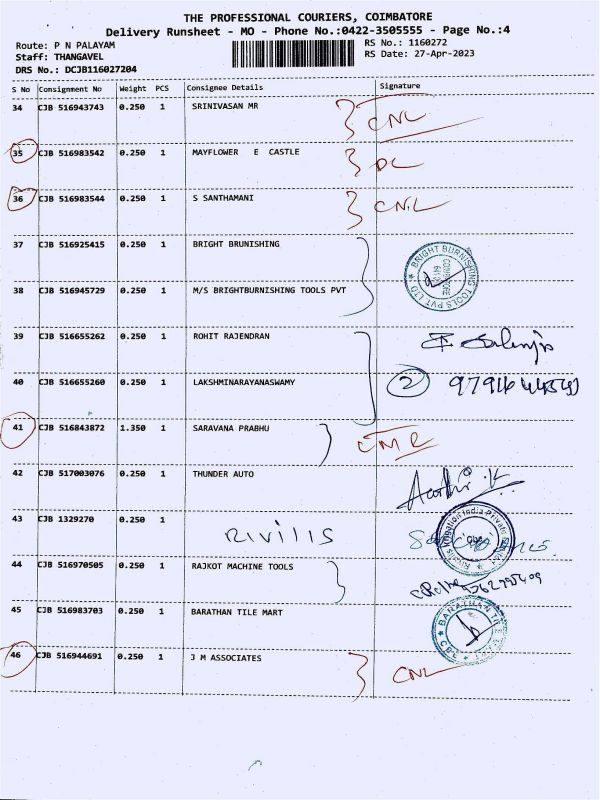 THE PROFESSIONAL COURIERS, COIMBATORE
Delivery Runsheet - MO - Phone No.:0422-3505555 - Page No.:4
Route: P N PALAYAM RS No.: 1160272
Staff: THANGAVEL RS Date: 27-Apr-2023
DRS No.: DCJB116027204
S No Consignment No Weight PCS Consignee Details Signature
34 CJB 516943743 0.250 1 SRINIVASAN MR CNL
35 CJB 516983542 0.250 1 MAYFLOWER E CASTLE DC
36 CJB 516983544 0.250 1 S SANTHAMANI CNL
37 CJB 516925415 0.250 1 BRIGHT BRUNISHING
BRIGHT BURNISHING TOOLS PVT LTD
38 CJB 516945729 0.250 1 M/S BRIGHTBURNISHING TOOLS PVT
39 CJB 516655262 0.250 1 ROHIT RAJENDRAN
40 CJB 516655260 0.250 1 LAKSHMINARAYANASWAMY 2
41 CJB 516843872 1.350 1 SARAVANA PRABHU CMR
42 CJB 517003076 0.250 1 THUNDER AUTO
43 CJB 1329270 0.250 1 RIVILIS
44 CJB 516970505 0.250 1 RAJKOT MACHINE TOOLS
45 CJB 516983703 0.250 1 BARATHAN TILE MART
BARATHAN TILE MART
CBE
46 CJB 516944691 0.250 1 J M ASSOCIATES CNL